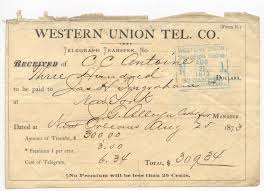 (Form 9.)
WESTERN UNION TEL. CO.
TELEGRAPH TRANSFER, No.
RECEIVED of C. C. Antoine
Three Hundred DOLLARS,
to be paid to Jas. H. Ingraham
at New York
MANAGER.
Dated at New Orleans Aug 25 1873
Amount of $ 300.00
" Premium 1 per cent. 3.00
Cost of Telegram, 6.34 TOTAL, $ 309.34
No Premium will be less than 25 Cents.